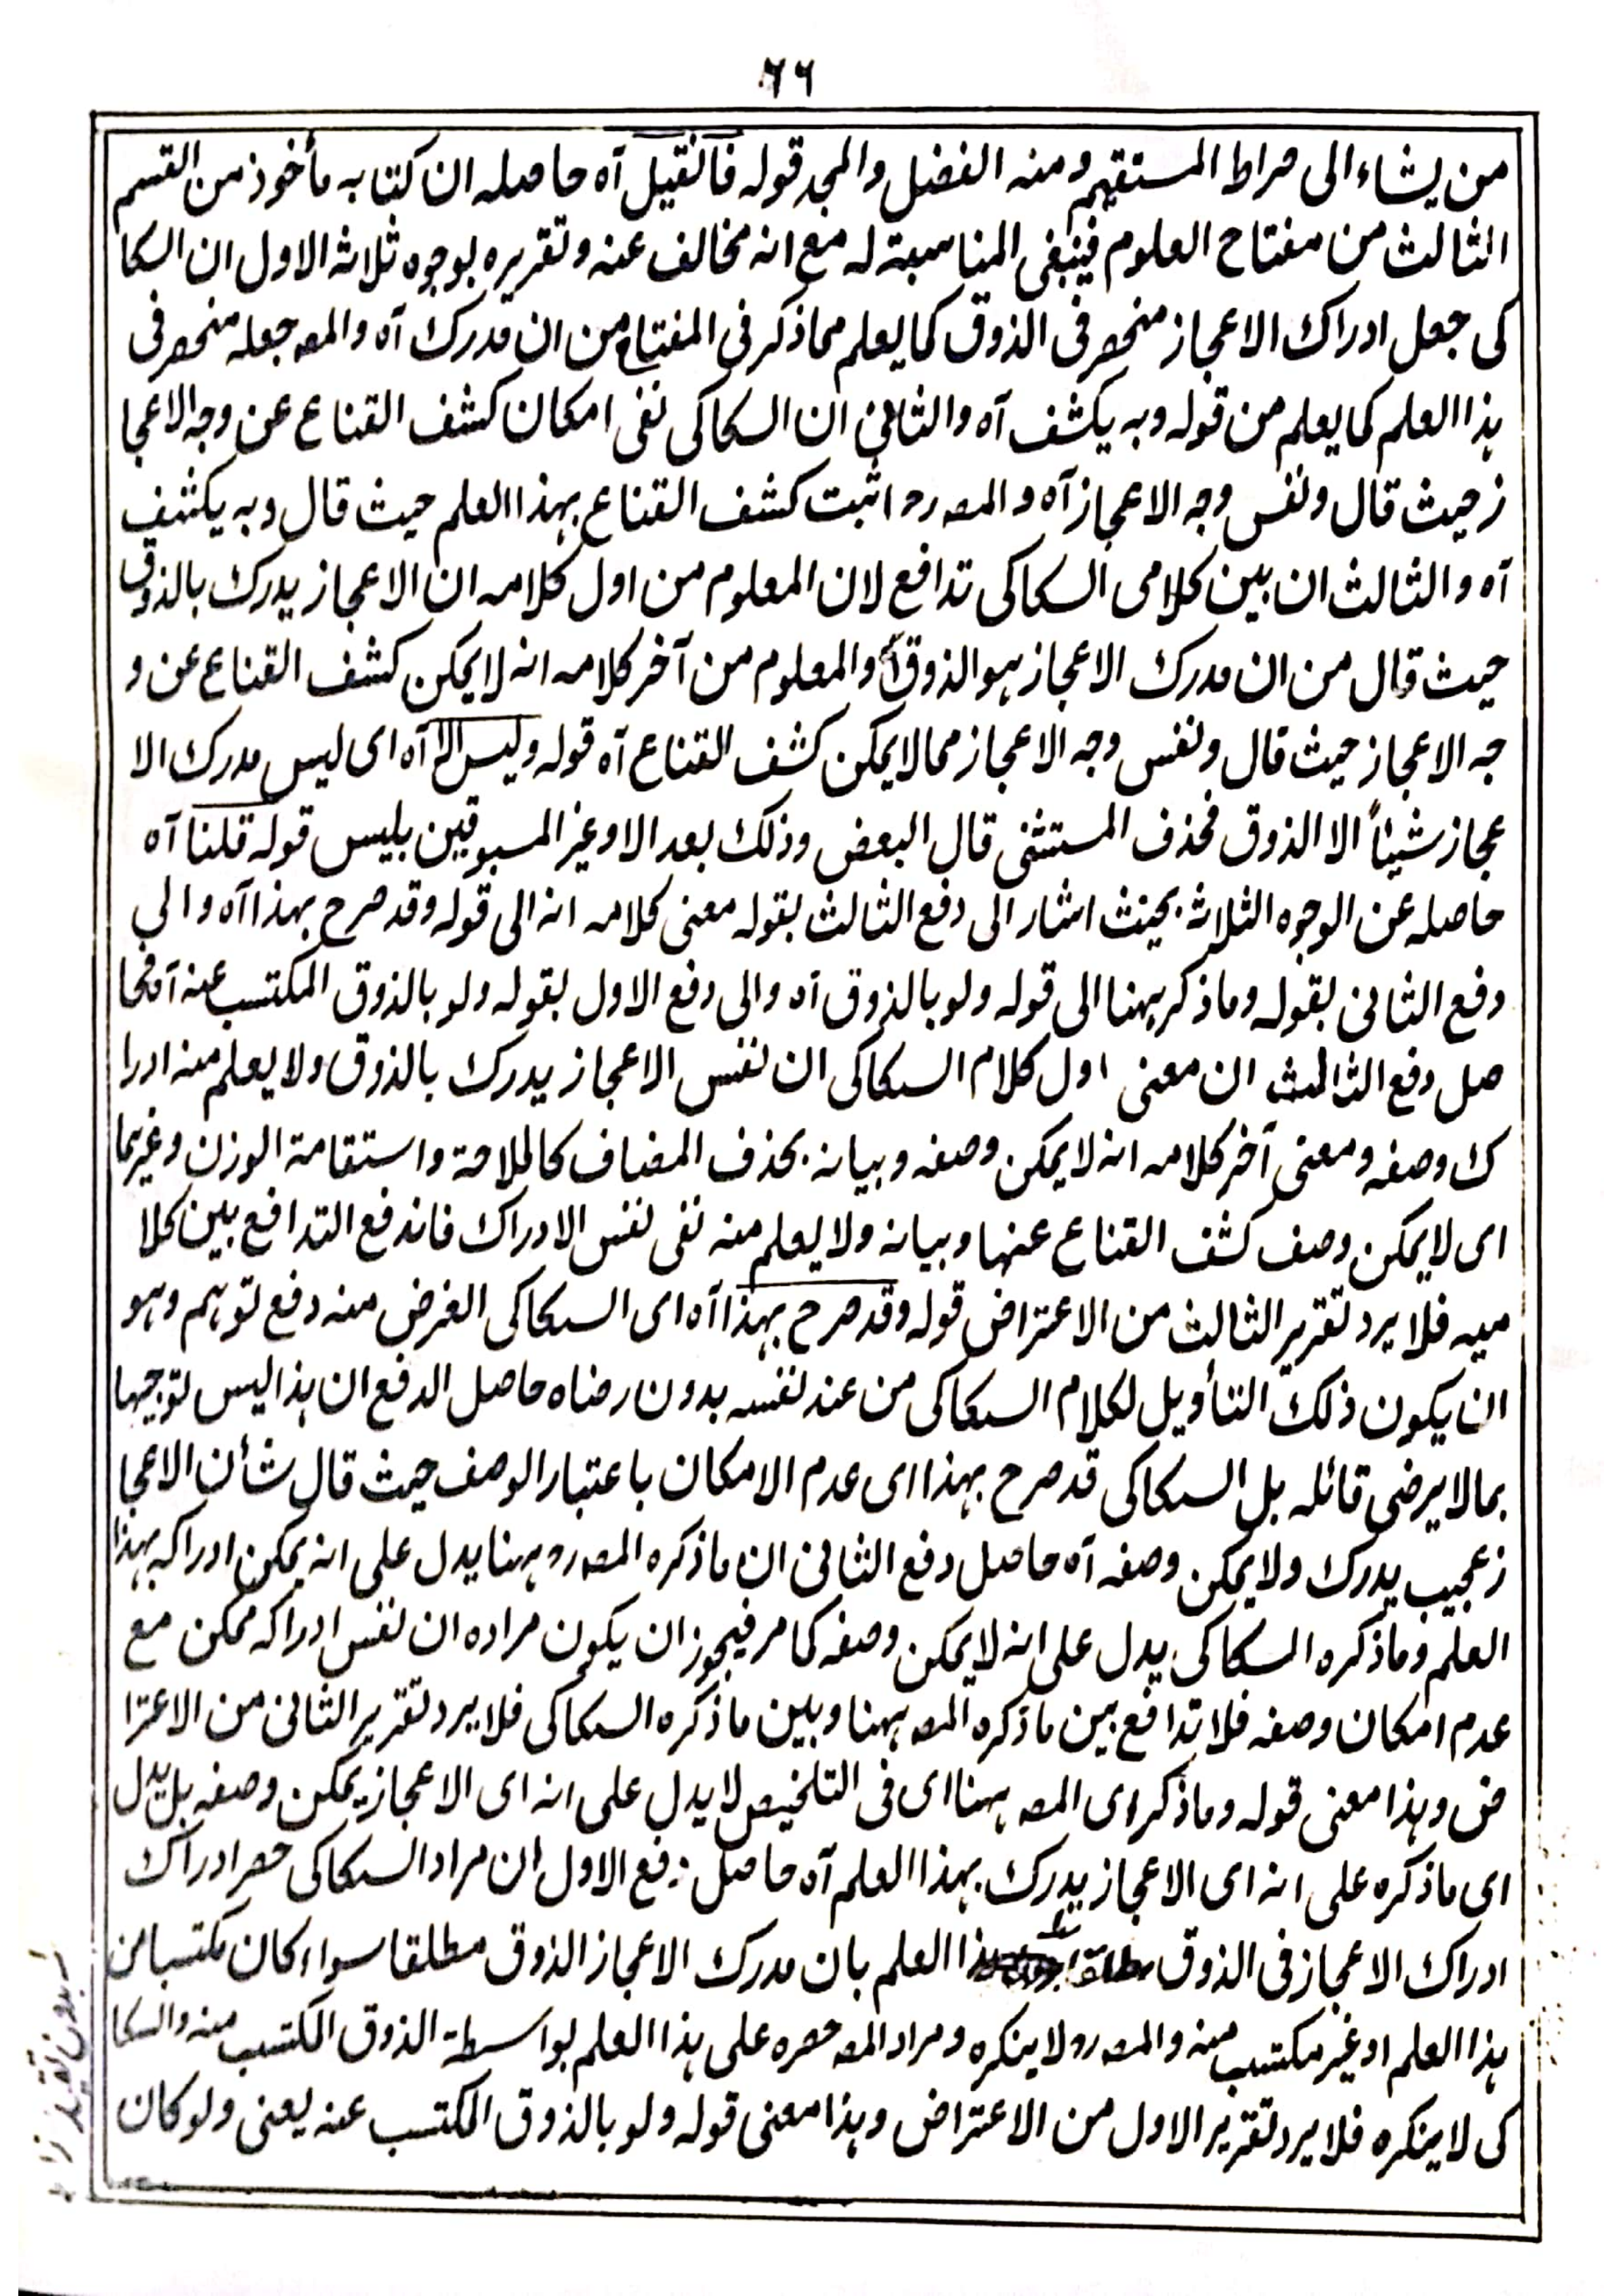 ٦٦
من يشاء الى صراط المستقيم ومنه الفضل والمجد قوله فآنقيل آه حاصله ان كتابه مأخوذ من القسم
الثالث من مفتاح العلوم فينبغى المناسبة له مع انه مخالف عنه وتقريره بوجوه ثلاثة الاول ان السكا
كى جعل ادراك الاعجاز منحصر فى الذوق كما يعلم مما ذكر فى المفتاح من ان مدرك آه والمصـ جعله منحصر فى
هذا العلم كما يعلم من قوله وبه يكشف آه والثانى ان السكاكى نفى امكان كشف القناع عن وجه الاعجا
ز حيث قال ونفس وجه الاعجاز آه والمصـ رح اثبت كشف القناع بهذا العلم حيث قال وبه يكشف
آه والثالث ان بين كلامى السكاكى تدافع لان المعلوم من اول كلامه ان الاعجاز يدرك بالذوق
حيث قال من ان مدرك الاعجاز هو الذوق آه والمعلوم من آخر كلامه انه لا يمكن كشف القناع عن و
جه الاعجاز حيث قال ونفس وجه الاعجاز مما لا يمكن كشف القناع آه قوله وليس الا آه اى ليس مدرك الا
عجاز شيئاً الا الذوق فحذف المستثنى قال البعض وذلك بعد الا وغير المسبوقين بليس قوله قلنا آه
حاصله عن الوجوه الثلاثة بحيث اشار الى دفع الثالث بقوله معنى كلامه انه الى قوله وقد صرح بهذا آه والى
دفع الثانى بقوله وما ذكر ههنا الى قوله ولو بالذوق آه والى دفع الاول بقوله ولو بالذوق المكتسب عنه آه فحا
صل دفع الثالث ان معنى اول كلام السكاكى ان نفس الاعجاز يدرك بالذوق ولا يعلم منه ادرا
ك وصفه ومعنى آخر كلامه انه لا يمكن وصفه وبيانه بحذف المضاف كالملاحة واستقامة الوزن وغيرهما
اى لا يمكن وصف كشف القناع عنها وبيانه ولا يعلم منه نفى نفس الادراك فاندفع التدافع بين كلا
ميه فلا يرد تقرير الثالث من الاعتراض قوله وقد صرح بهذا آه اى السكاكى الغرض منه دفع توهم وهو
ان يكون ذلك التأويل لكلام السكاكى من عند نفسه بدون رضاه حاصل الدفع ان هذا ليس توجيها
بما لا يرضى قائله بل السكاكى قد صرح بهذا اى عدم الامكان باعتبار الوصف حيث قال شأن الاعجا
ز عجيب يدرك ولا يمكن وصفه آه حاصل دفع الثانى ان ما ذكره المصـ رح ههنا يدل على انه يمكن ادراكه بهذا
العلم وما ذكره السكاكى يدل على انه لا يمكن وصفه كما مر فيجوز ان يكون مراده ان نفس ادراكه ممكن مع
عدم امكان وصفه فلا تدافع بين ما ذكره المصـ ههنا وبين ما ذكره السكاكى فلا يرد تقرير الثانى من الاعترا
ض وهذا معنى قوله وما ذكر اى المصـ ههنا اى فى التلخيص لا يدل على انه اى الاعجاز يمكن وصفه بل يدل
اى ما ذكره على انه اى الاعجاز يدرك بهذا العلم آه حاصل دفع الاول ان مراد السكاكى حصر ادراك
ادراك الاعجاز فى الذوق مطلقا هذا العلم بان مدرك الاعجاز الذوق مطلقا سواء كان مكتسبا من
هذا العلم او غير مكتسب منه والمصـ رح لا ينكره ومراد المصـ حصره على هذا العلم بواسطة الذوق المكتسب منه والسكا
كى لا ينكره فلا يرد تقرير الاول من الاعتراض وهذا معنى قوله ولو بالذوق المكتسب عنه يعنى ولو كان